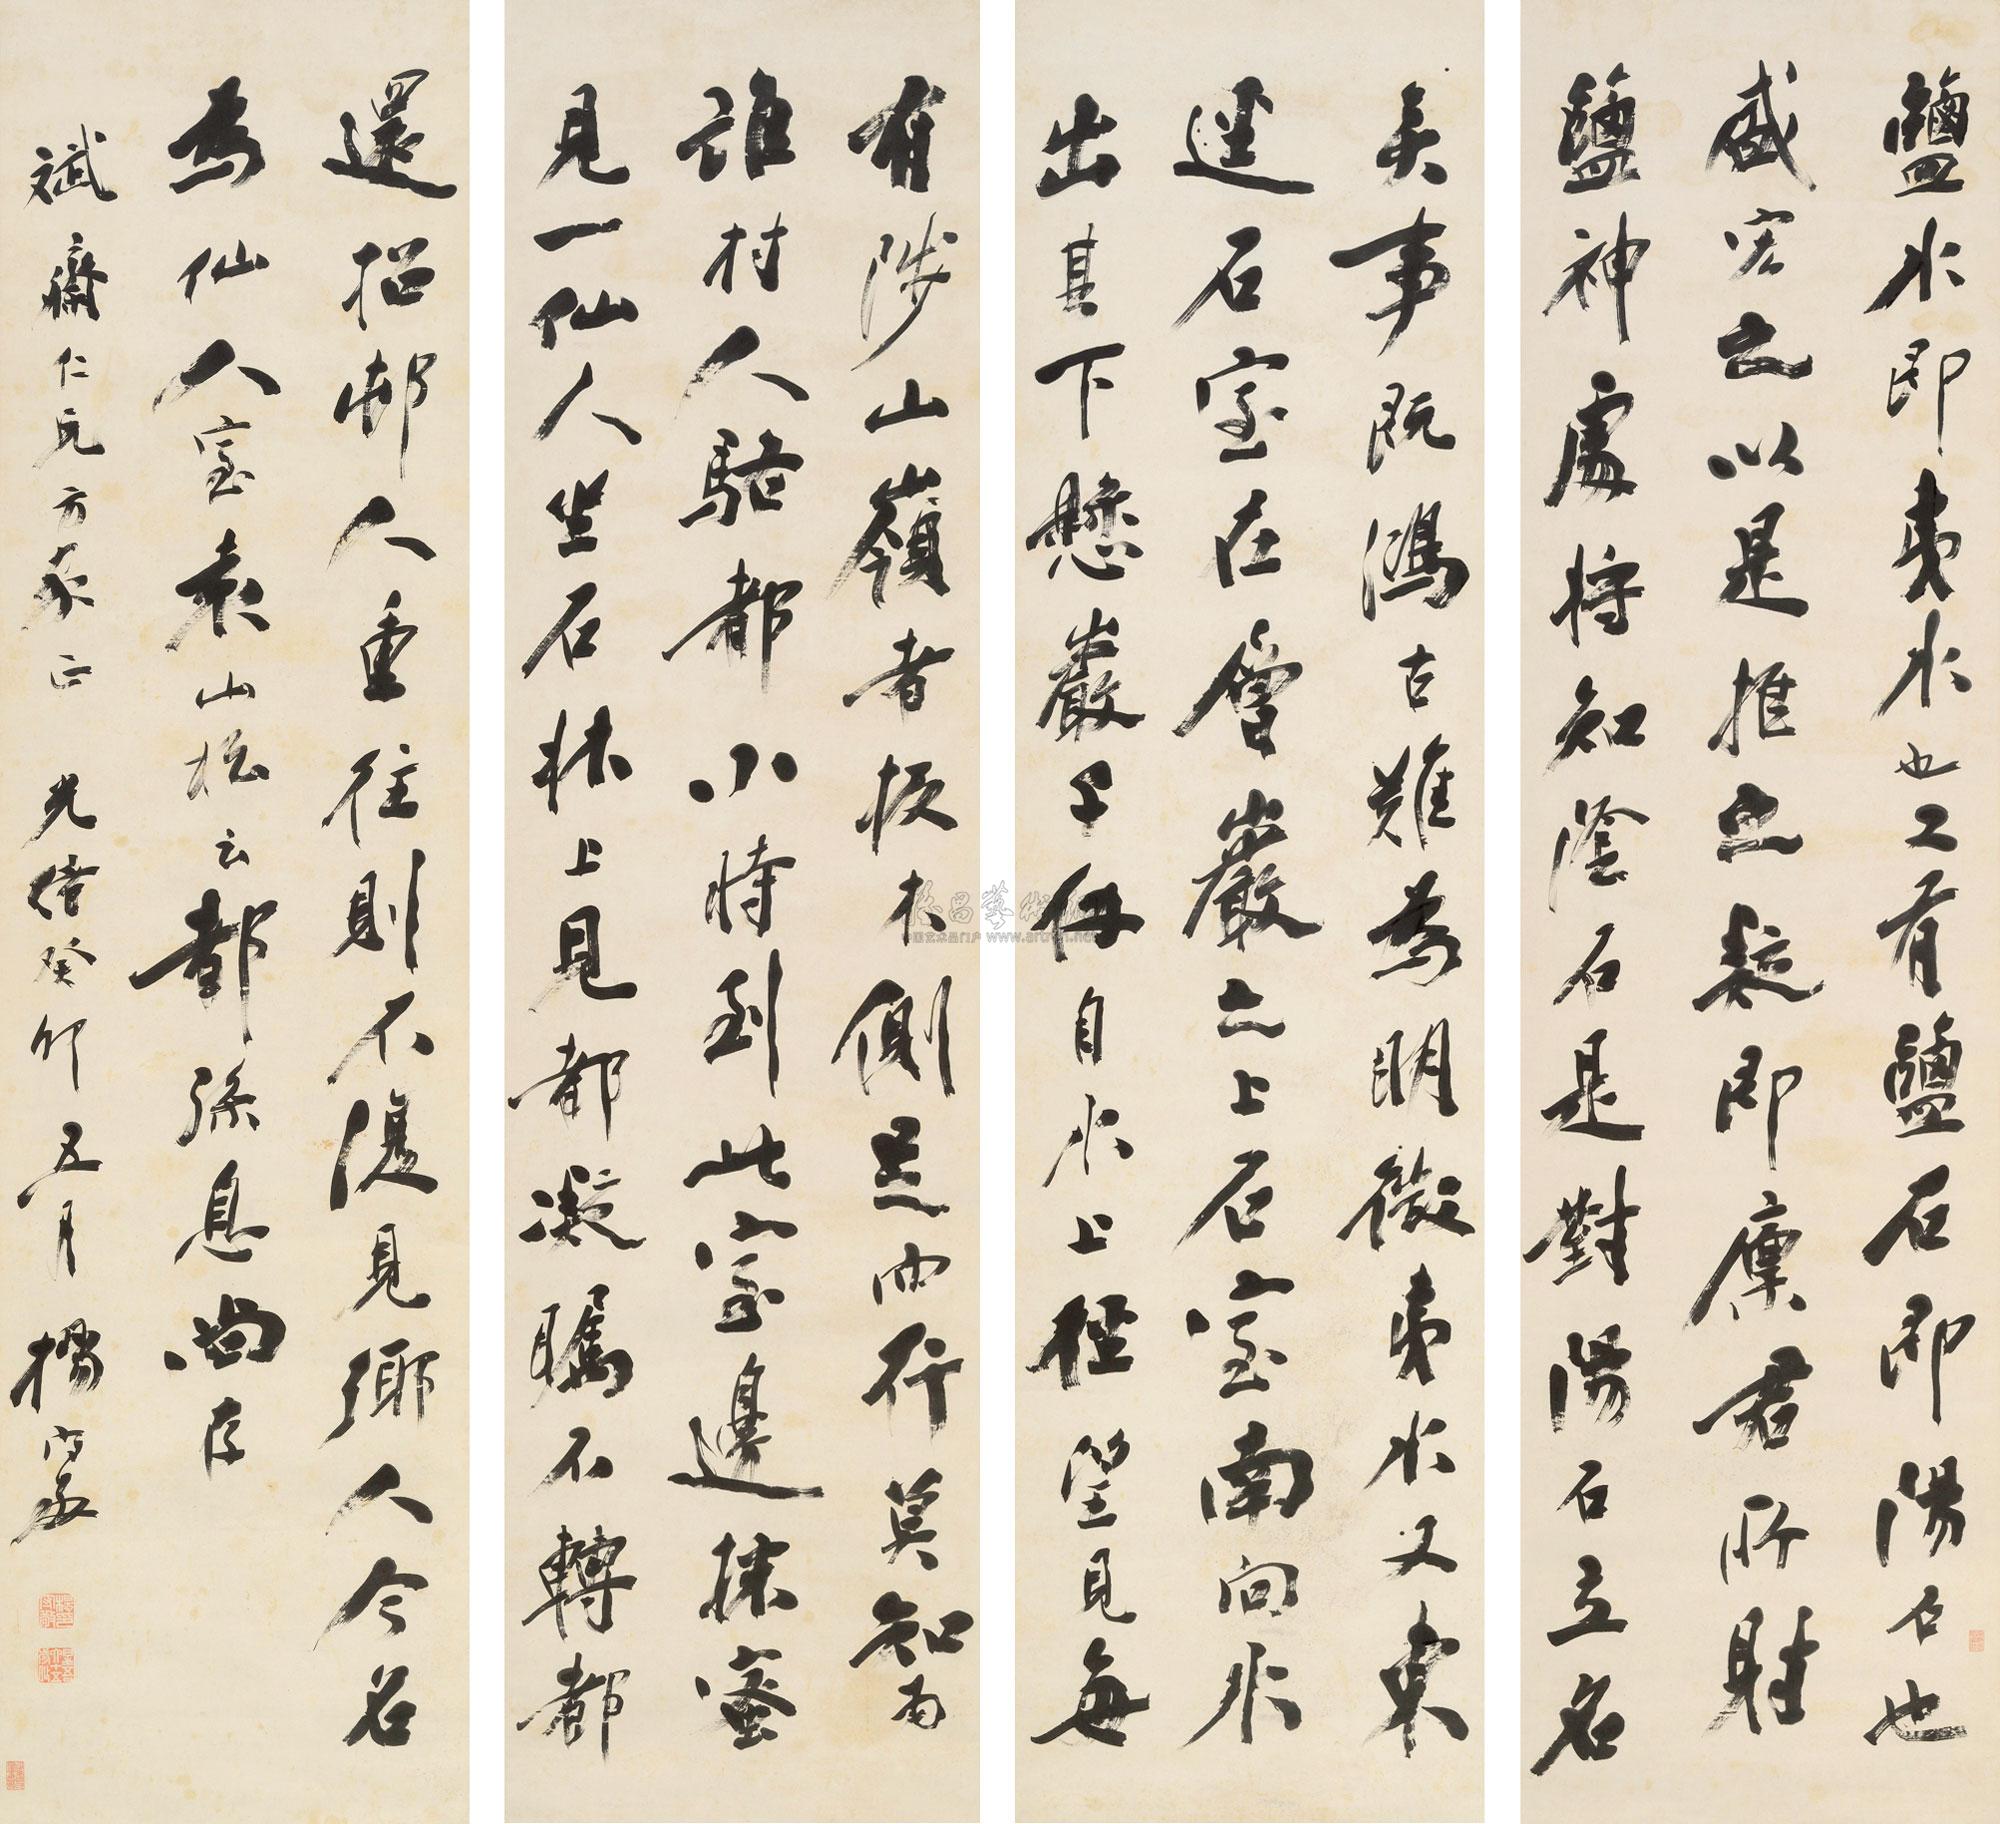 鹽水即夷水也又有鹽石即陽石也
盛宏之以是推之疑即廩君所射
鹽神處將知陰石是對陽石立名
矣事既鴻古難為明徵夷水又東
逕石室在層巖之上石室南向水
出其下懸巖千仞自水上徑望見每
有陟山嶺者扳木側足而行莫知
誰村人駱都小時到此室邊採蜜
見一仙人坐石牀上見都凝矚不轉都
還招邨人重往則不復見鄉人今名
為仙人室袁山松云都孫息尚存
斌齋仁兄方家正 光緒癸卯五月 楊守敬